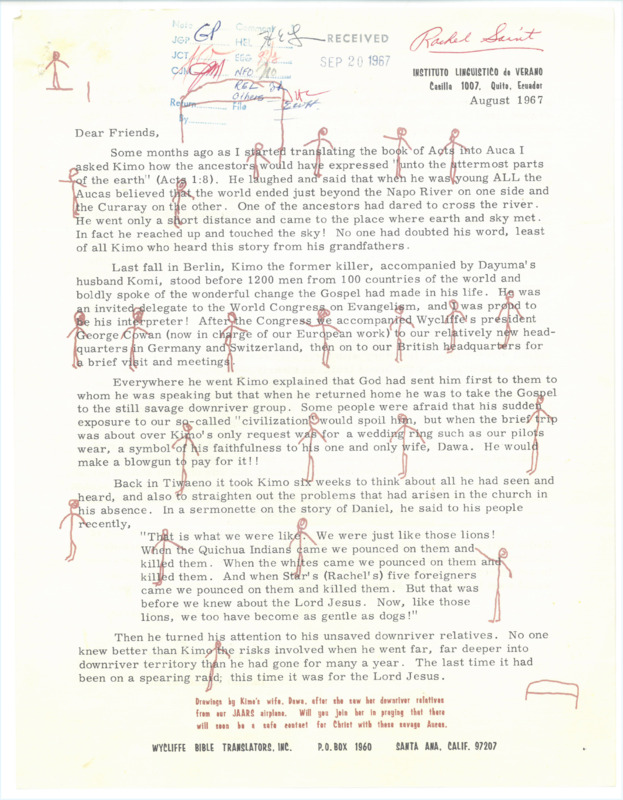 Note
JGP GP
JCT
CdM
Return
By
Company
HEL
EGG
NPD
REL
Others
File
RECEIVED
SEP 20 1967
Rachel Saint
INSTITUTO LINGUISTICO de VERANO
Casilla 1007, Quito, Ecuador
August 1967
Dear Friends,
Some months ago as I started translating the book of Acts into Auca I
asked Kimo how the ancestors would have expressed "unto the uttermost parts
of the earth" (Acts 1:8). He laughed and said that when he was young ALL the
Aucas believed that the world ended just beyond the Napo River on one side and
the Curaray on the other. One of the ancestors had dared to cross the river.
He went only a short distance and came to the place where earth and sky met.
In fact he reached up and touched the sky! No one had doubted his word, least
of all Kimo who heard this story from his grandfathers.
Last fall in Berlin, Kimo the former killer, accompanied by Dayuma's
husband Komi, stood before 1200 men from 100 countries of the world and
boldly spoke of the wonderful change the Gospel had made in his life. He was
an invited delegate to the World Congress on Evangelism, and I was proud to
be his interpreter! After the Congress we accompanied Wycliffe's president
George Cowan (now in charge of our European work) to our relatively new head-
quarters in Germany and Switzerland, then on to our British headquarters for
a brief visit and meetings.
Everywhere he went Kimo explained that God had sent him first to them to
whom he was speaking but that when he returned home he was to take the Gospel
to the still savage downriver group. Some people were afraid that his sudden
exposure to our so-called "civilization" would spoil him, but when the brief trip
was about over Kimo's only request was for a wedding ring such as our pilots
wear, a symbol of his faithfulness to his one and only wife, Dawa. He would
make a blowgun to pay for it!!
Back in Tiwaeno it took Kimo six weeks to think about all he had seen and
heard, and also to straighten out the problems that had arisen in the church in
his absence. In a sermonette on the story of Daniel, he said to his people
recently,
"That is what we were like. We were just like those lions!
When the Quichua Indians came we pounced on them and
killed them. When the whites came we pounced on them and
killed them. And when Star's (Rachel's) five foreigners
came we pounced on them and killed them. But that was
before we knew about the Lord Jesus. Now, like those
lions, we too have become as gentle as dogs!"
Then he turned his attention to his unsaved downriver relatives. No one
knew better than Kimo the risks involved when he went far, far deeper into
downriver territory than he had gone for many a year. The last time it had
been on a spearing raid; this time it was for the Lord Jesus.
Drawings by Kimo's wife, Dawa, after she saw her downriver relatives
from our JAARS airplane. Will you join her in praying that there
will soon be a safe contact for Christ with these savage Aucas.
WYCLIFFE BIBLE TRANSLATORS, INC. P.O. BOX 1960 SANTA ANA, CALIF. 97207